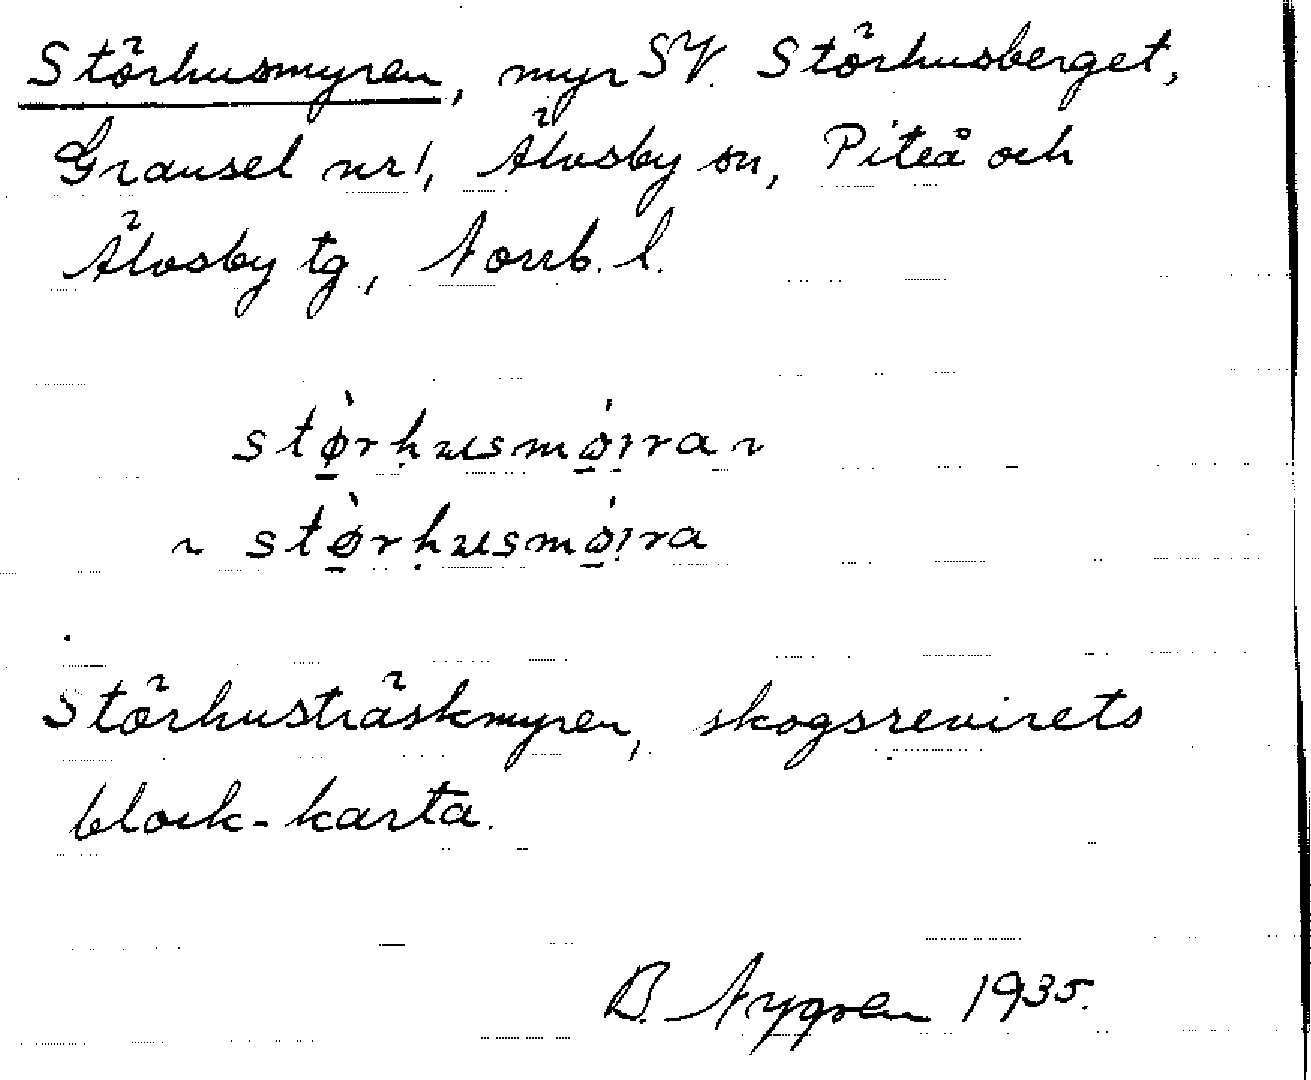 Störhusmyren, myr SV. Störhusberget,
Gransel nr 1, Älvsby sn, Piteå och
Älvsby tg, Norrb. l.
stø̀rḥusmǿıra ~
~ stø̀rḥusmǿıra
Störhusträskmyren, skogsrevirets
block-karta.
B. Nygren 1935.